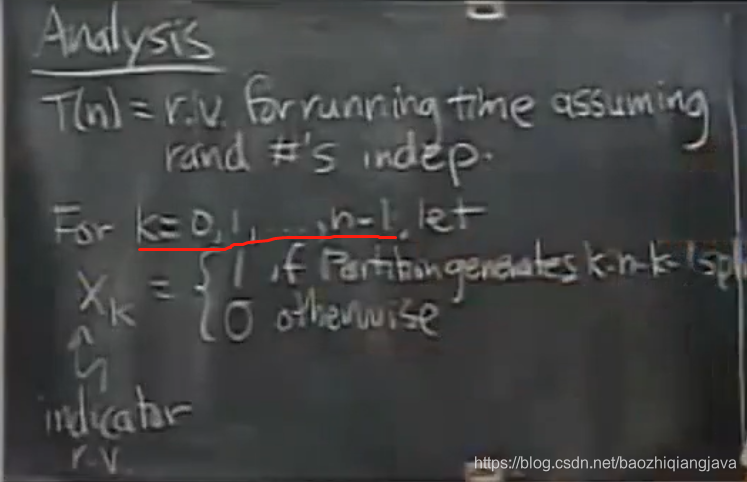 Analysis
T(n) = r.v. for running time assuming
rand #'s indep.
For k=0,1,...,n-1, let
X_k = { 1 if Partition generates k:n-k-1 spl
0 otherwise
indicator
r.v.
https://blog.csdn.net/baozhiqiangjava